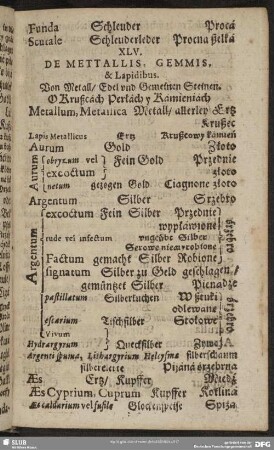 Funda Schleuder Proca
Scutale Schleuderleder Procna
XLV.
DE METTALLIS, GEMMIS,
& Lapidibus.
Von Metall/ Edel und Gemeinen Steinen.
O Kruścach Perłách y Kámieniách
Metallum, Metallica Metall/ allerley Ertz
Krußec
Lapis Metallicus Ertz Krußcowy kámień
Aurum Gold Złoto
Aurum obryzum vel Fein Gold Przednie
excoctum złoto
netum gezogen Gold Ciągnone złoto
Argentum Silber Srzebro
Argentum excoctum Fein Silber Przednie
wypławione
rude vel infectum Silber
Surowe
Factum gemacht Silber Robione
signatum Silber zu Geld geschlagen/
gemüntzet Silber Pieniądze
pastillatum Silberkuchen
odlewane
escarium Tischsilber Stołowe
Vivum
Hydrargyrum Quecksilber
Argenti spuma, Lithargyrium Helcysma silberschaum
silberglette Piáná srzebrna
Æs Ertz/ Kupffer Miedź
Æs Cyprium, Cuprum Kupffer
Æs caldarium vel fusile Glockenspeise Spiża.
SLUB
DFG